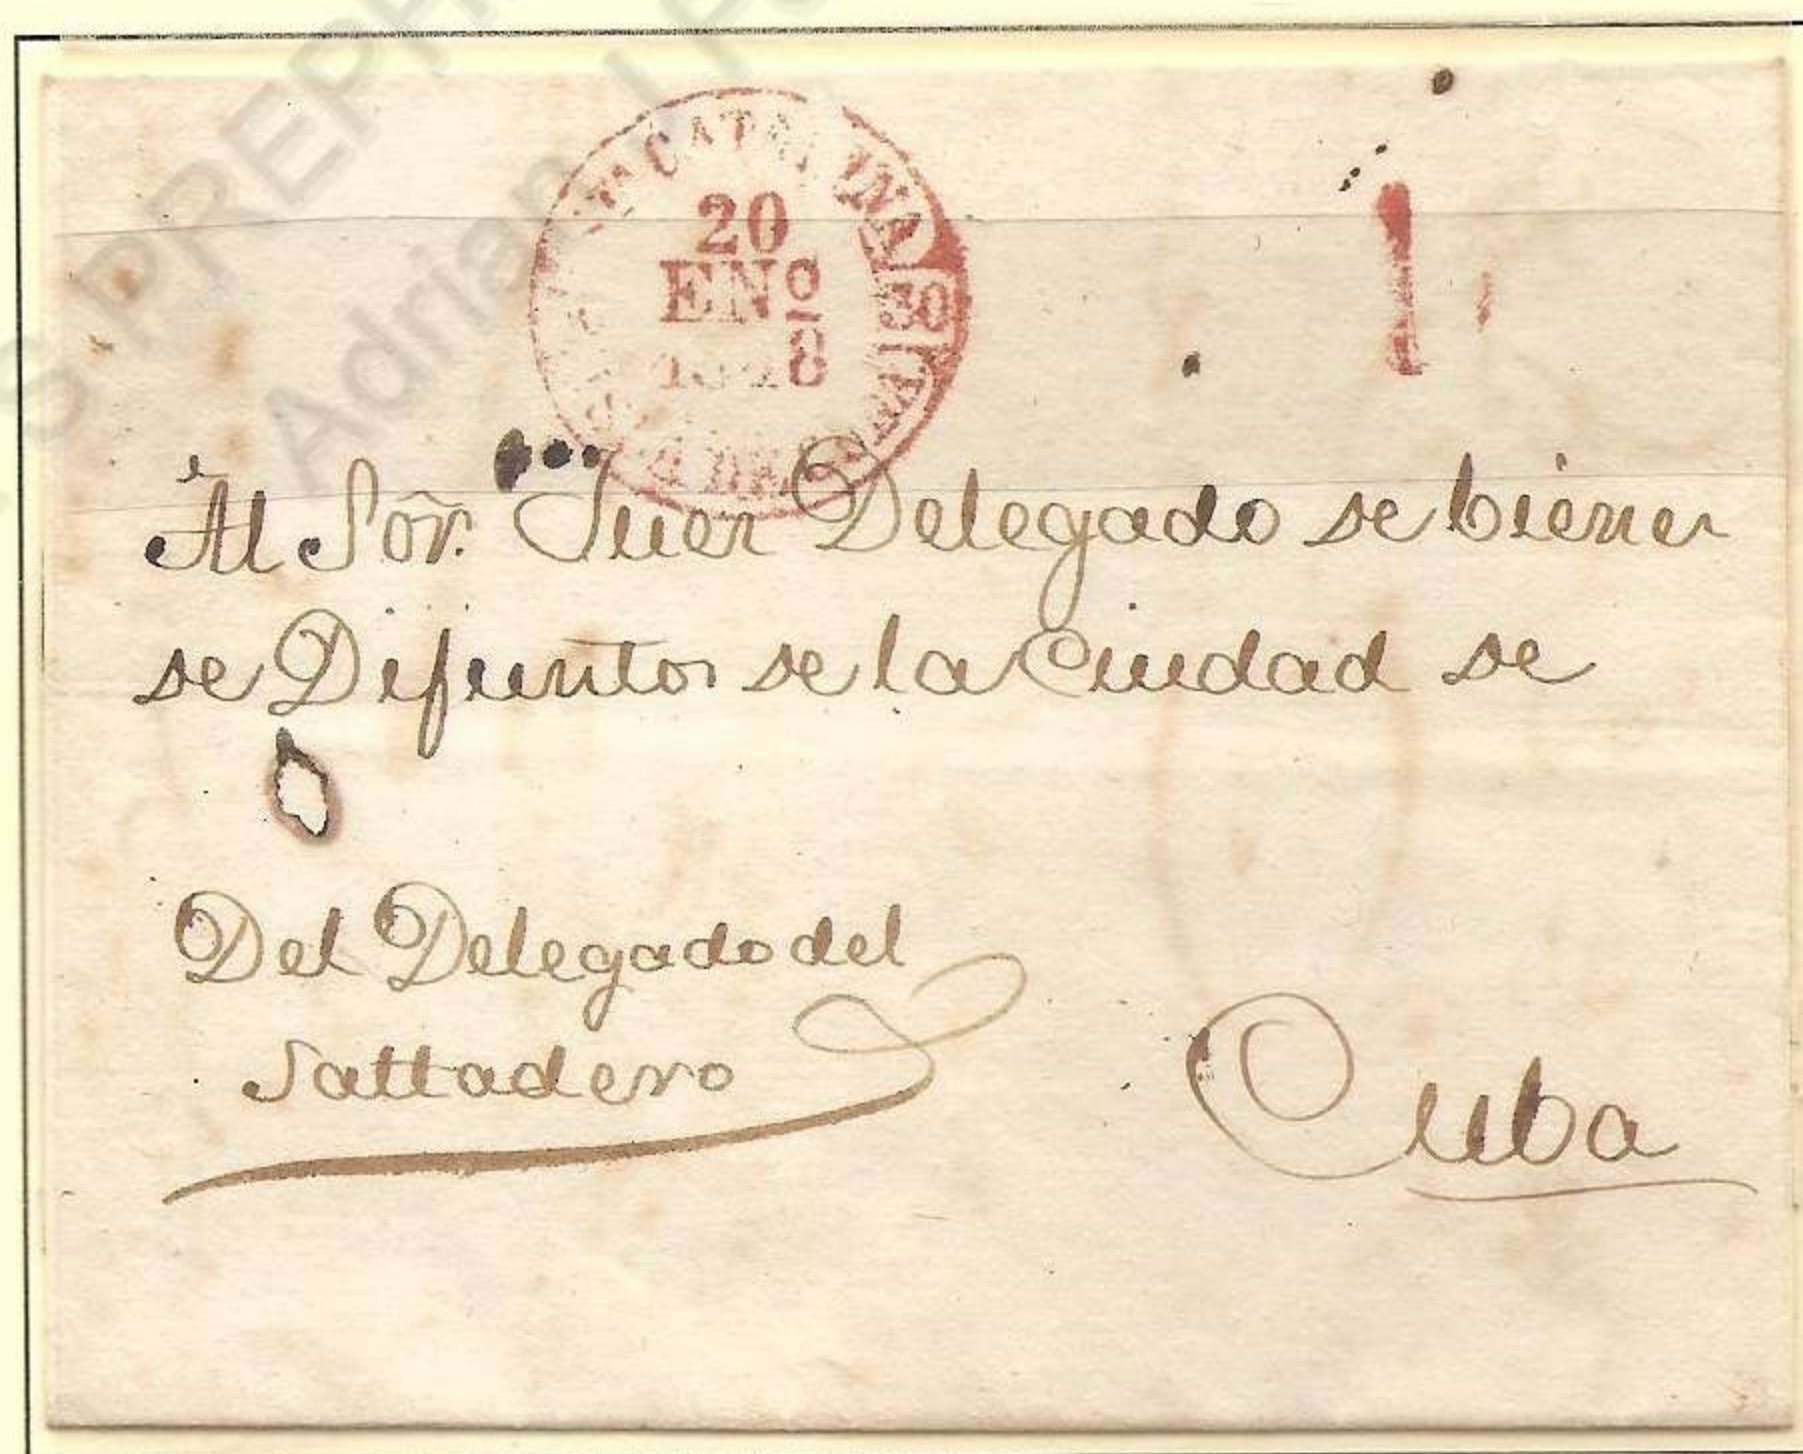 STA CATALINA
20
ENº
8
30
1
Al Sor. Juez Delegado de bienes
de Difuntos de la Ciudad de
Del Delegado del
Saltadero
Cuba
PREPH
Adrian